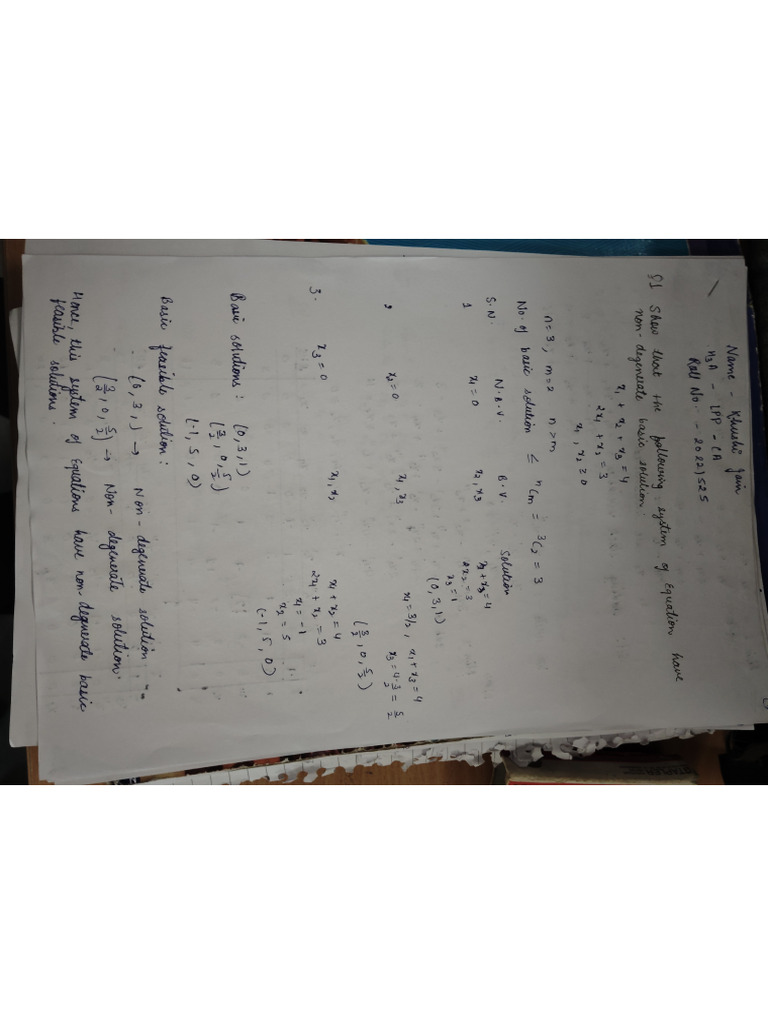 Name - Khushi Jain
H3A - LPP - CA
Roll No. - 20221525
Q1 Show that the following system of Equation have
non-degenerate basic solution.
x₁ + x₂ + x₃ = 4
2x₁ + x₂ = 3
x₁, x₂ ≥ 0
n=3, m=2 n>m
No. of basic solution ≤ nCm = ³C₂ = 3
S.N. N.B.V. B.V. Solution
1 x₁=0 x₂, x₃ x₂+x₃=4
x₂=3
x₃=1
(0,3,1)
x₂=0 x₁, x₃ x₁=3/2, x₁+x₃=4
x₃=4-3/2=5/2
(3/2, 0, 5/2)
3. x₃=0 x₁, x₂ x₁+x₂=4
2x₁+x₂=3
x₁=-1
x₂=5
(-1,5,0)
Basic solutions : (0,3,1)
(3/2, 0, 5/2)
(-1, 5, 0)
Basic feasible solution :
(0, 3, 1) → Non-degenerate solution
(3/2, 0, 5/2) → Non-degenerate solution.
Hence, this system of Equations have non-degenerate basic
feasible solutions.